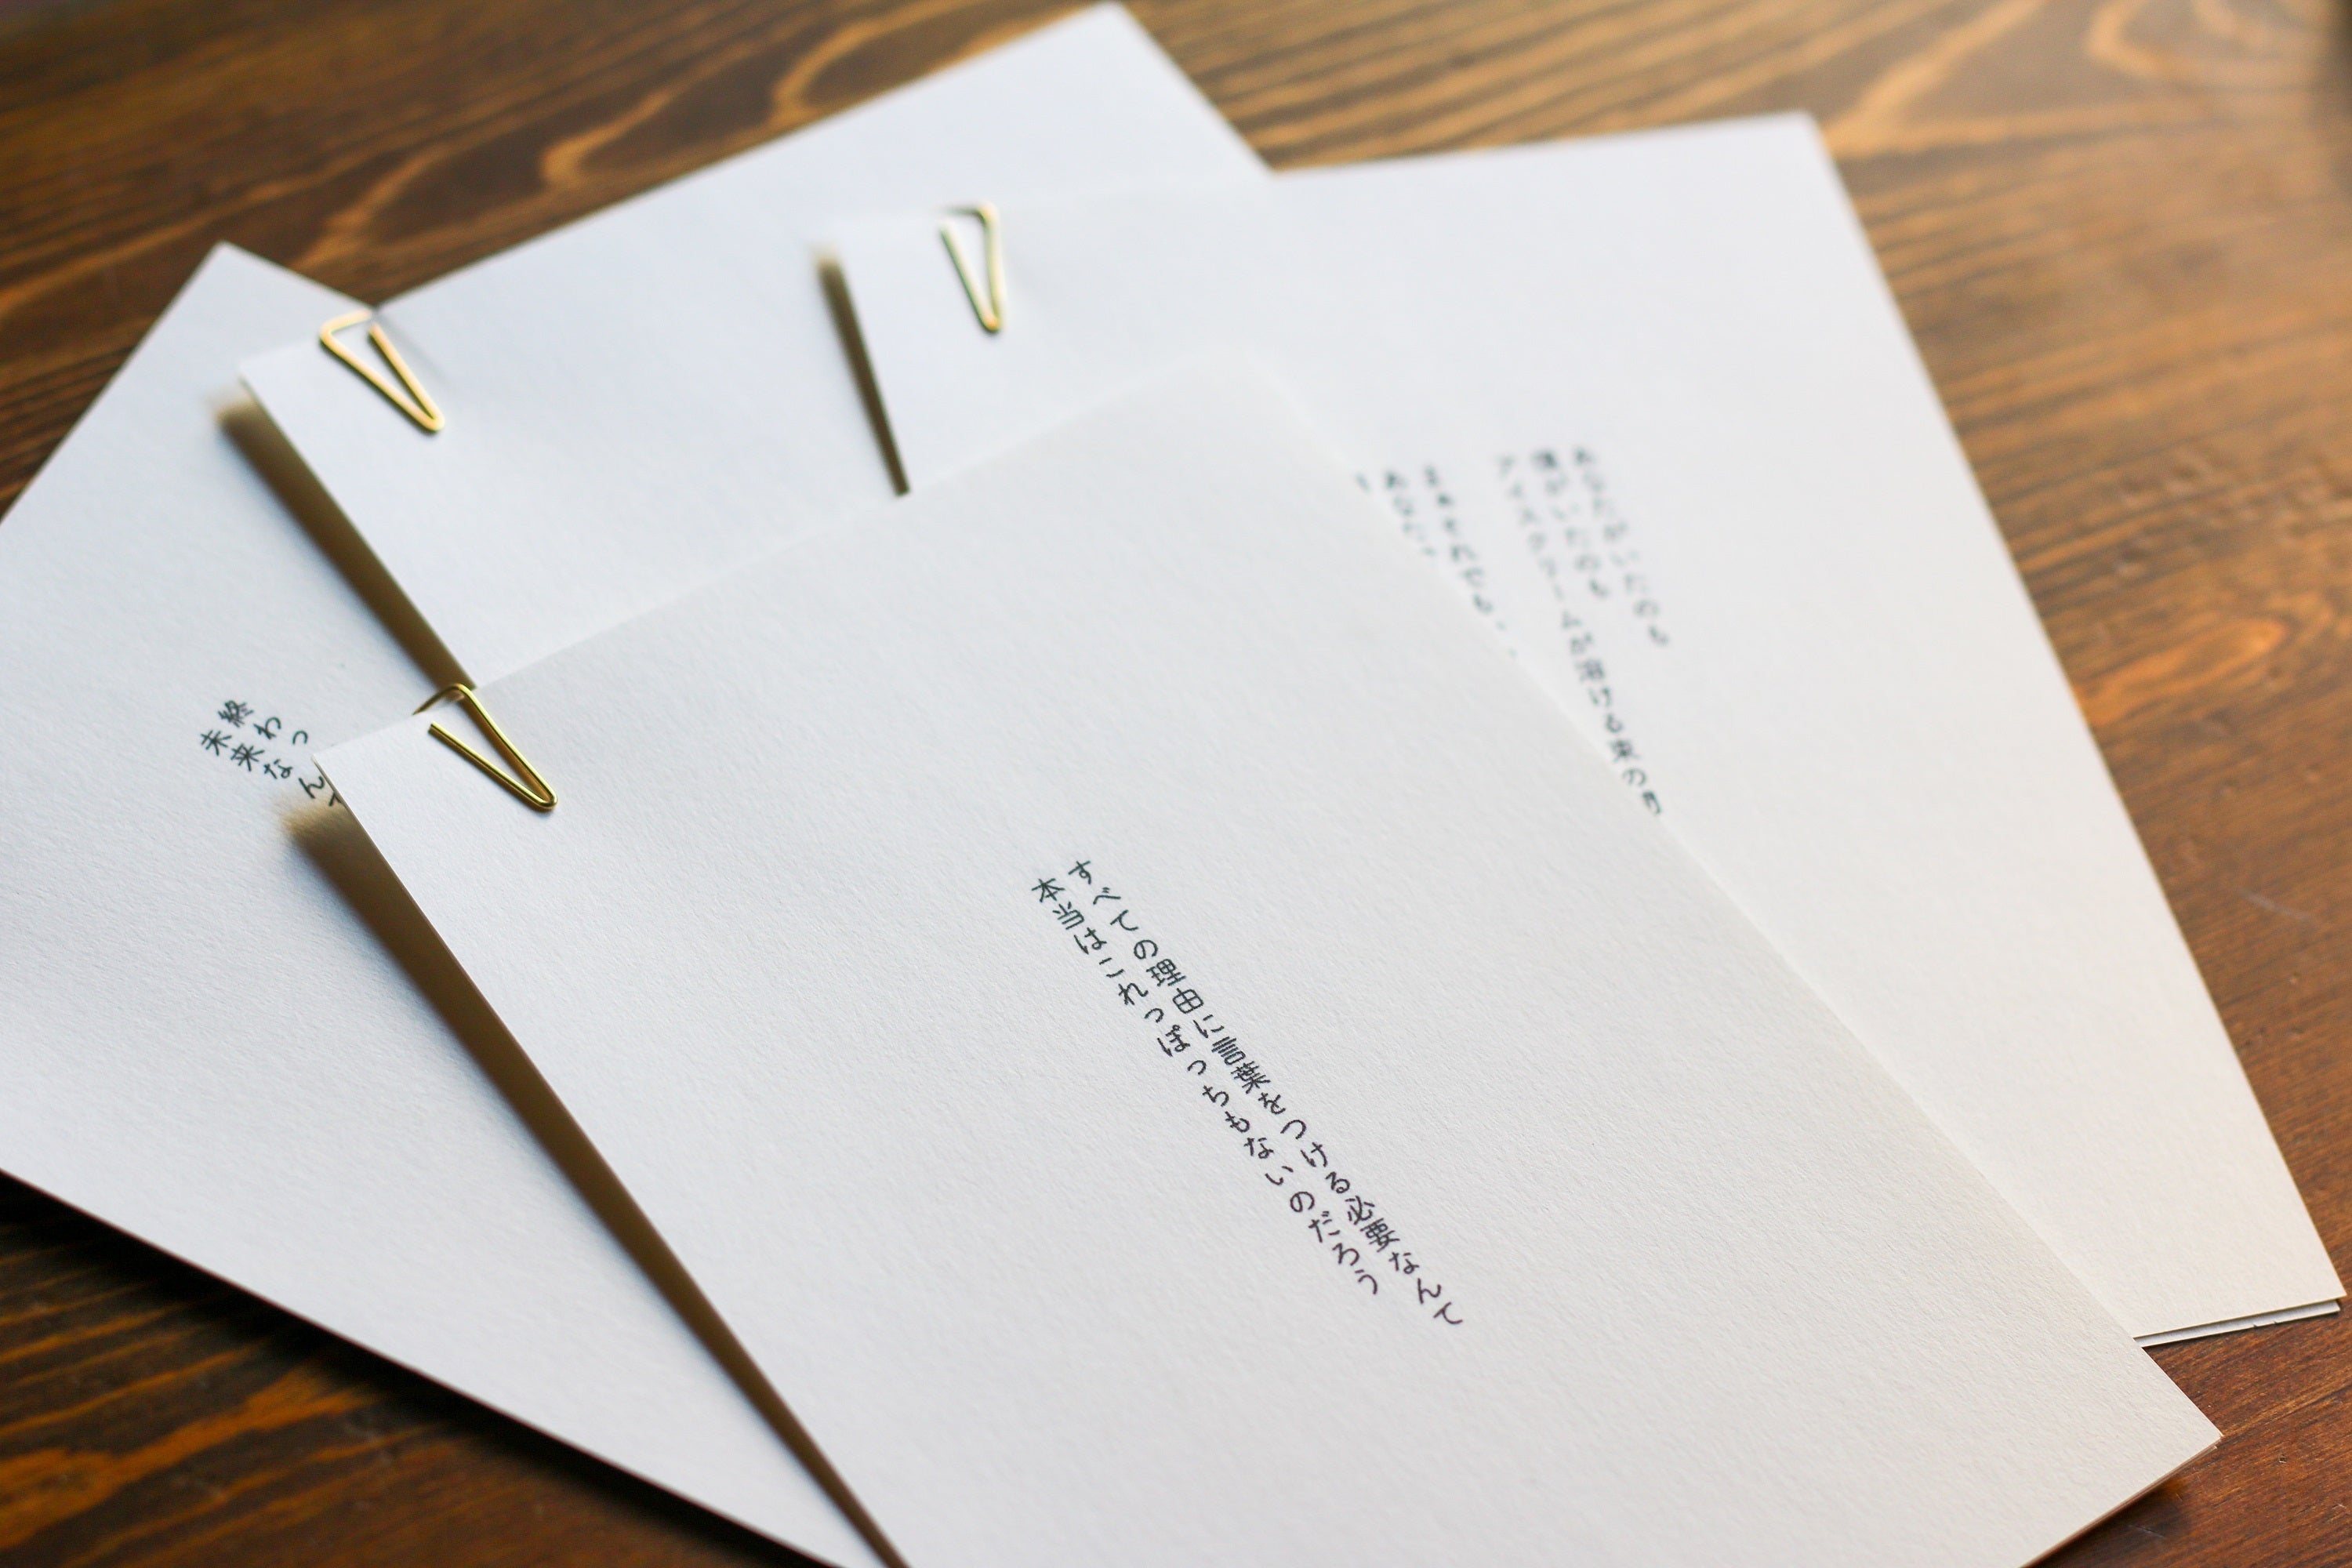 すべての理由に言葉をつける必要なんて
本当はこれっぽっちもないのだろう
あなたがいたのも
僕がいたのも
アイスクリームが溶ける束の間
終わっ
未来なんて